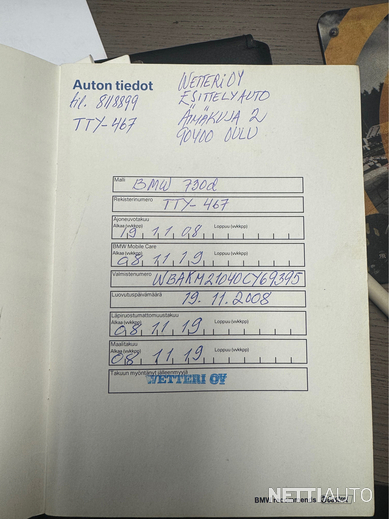 Auton tiedot
til. 8118899
TTY-467
WETTERI OY
ESITTELYAUTO
ÄIMÄKUJA 2
90400 OULU
Malli
BMW 730d
Rekisterinumero
TTY-467
Ajoneuvotakuu
Alkaa (vvkkpp) Loppuu (vvkkpp)
19 11 08
BMW Mobile Care
Alkaa (vvkkpp) Loppuu (vvkkpp)
08 11 19
Valmistenumero
WBAKM21040CY69395
Luovutuspäivämäärä
19.11.2008
Läpiruostumattomuustakuu
Alkaa (vvkkpp) Loppuu (vvkkpp)
08 11 19
Maalitakuu
Alkaa (vvkkpp) Loppuu (vvkkpp)
08 11 19
Takuun myöntänyt jälleenmyyjä
WETTERI OY
BMW recommends
NETTIAUTO